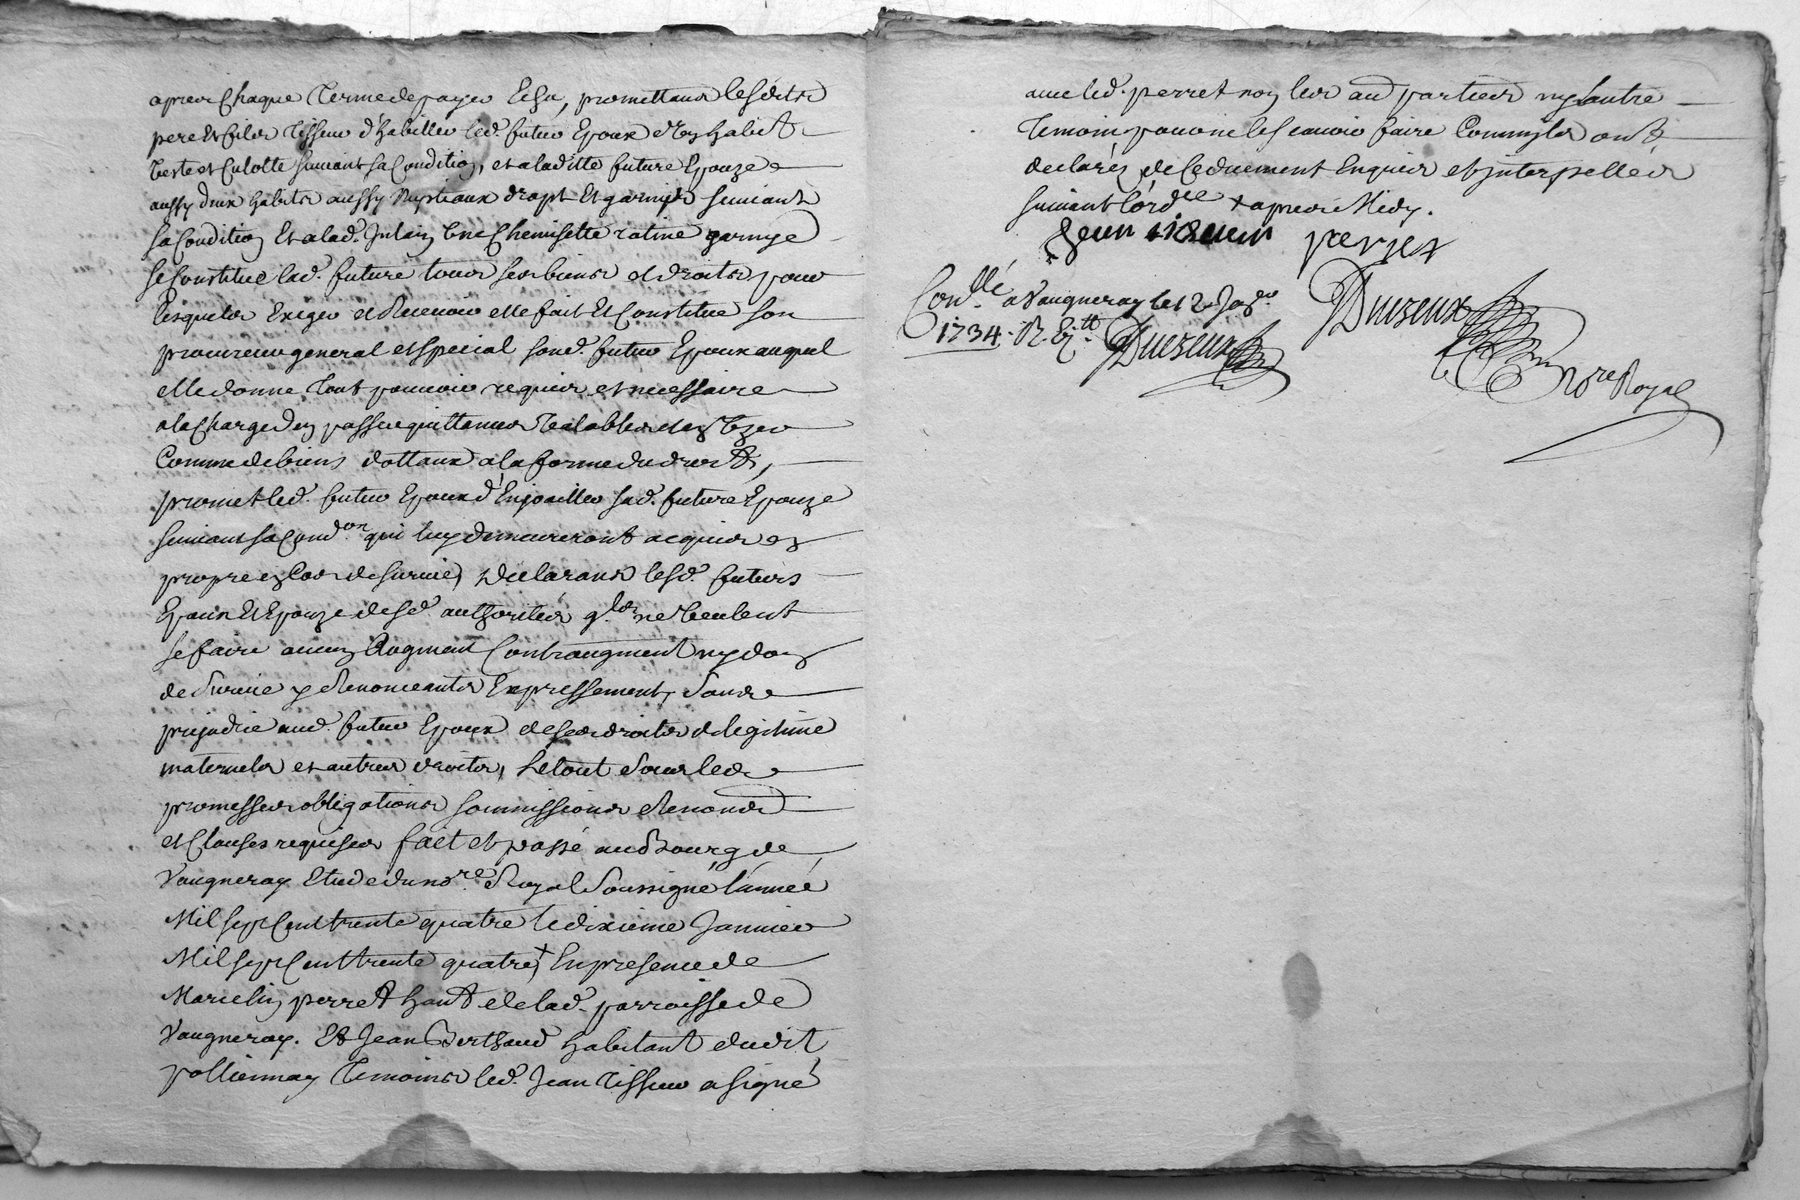 apres chaque terme de paye Echu, promettans lesdits
pere et fils Tisseur d'habiller led. futur Epoux d'un habit
veste et Culotte suivant sa Condition, et a laditte future Epouze
aussy deux habits aussy Nuptiaux drapt Et garnis suivant
sa Condition Et a lad. Julain une Chemisette ratine garnye
se Constitue lad. future tous ses biens et droits pour
lesquels Exiger et Recevoir elle fait Et Constitue son
procureur general et special sond. futur Epoux auquel
elle donne tout pouvoir requis et necessaire
a la Charge d'en passer quittances valables et en uzer
Comme de biens dottaux a la forme du droit,
promet led. futur Epoux d'Enjoailler sad. future Epouze
suivant sa Cond.on qui luy demeureront acquis en
propre en Cas de survie, declarans lesd. futurs
Epoux Et Epouze desd. authorités q.ls ne veulent
se faire aucun Augment Contraugment ny don
de survie y Renonceants Expressement, sans
prejudice aud. futur Epoux de ses droits de legitime
maternels et autres droits, le tout sous les
promesses obligations soumissions Renon.ons
et Clauses requises fait et passé au Bourg de
Vaugneray Etude du no.re Royal soussigné l'année
Mil sept Cent trente quatre le dixieme Janvier
Mil sept Cent trente quatre + En presence de
Marcelin perret hant de lad. parroisse de
Vaugneray. Et Jean Berthaud habitant dudit
pollionnay Temoins led. Jean Tisseur a signé
avec led. perret non les au.s parties ny l'autre
Temoin pour ne le scavoir faire Comm'ils ont
declarés de Ce duement Enquis et interpellés
suivant l'ord.ce + apres Midy.
Jean tiseur perret
Con.llé a Vaugneray le 12 Janv.er
1734. R.
Duvreux
Duvreux
No.re Royal